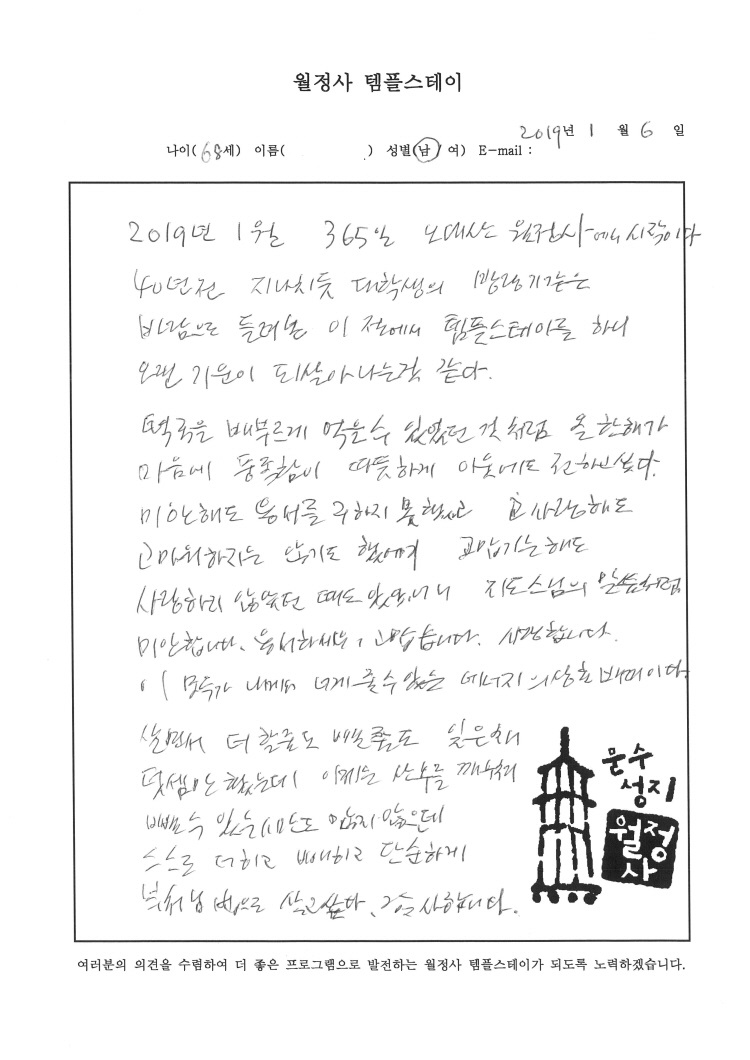 월정사 템플스테이
2019년 1 월 6 일
나이(68세) 이름( ) 성별(남/여) E-mail :
2019년 1월 365일 오대산 월정사에서 시작이다
40년전 지나치듯 대학생의 방랑기 같은
바람으로 들려본 이 절에서 템플스테이를 하니
오랜 기운이 되살아나는것 같다.
떡국을 배부르게 먹을수 있었던 것 처럼 올 한해가
마음에 풍족함이 따뜻하게 이웃에도 전하고 싶다.
미안해도 용서를 구하지 못했고 사랑해도
고마워하지는 않기도 했에게 고맙기는해도
사랑하지 않았던 때도 있었으니 지도스님의 말씀처럼
미안합니다. 용서하세요, 고맙습니다. 사랑합니다.
이 모두가 내게서 네게 줄수있는 에너지의 상호 이다.
살면서 더할줄도 뺄줄도 잊은채
덧셈만 했는데 이제는
뺄수 있는 시간도 많지 않은데
스스로 더하고 빼하고 단순하게
부처님 법으로 살고싶다. 감사합니다.
문수
성지
월정
사
여러분의 의견을 수렴하여 더 좋은 프로그램으로 발전하는 월정사 템플스테이가 되도록 노력하겠습니다.